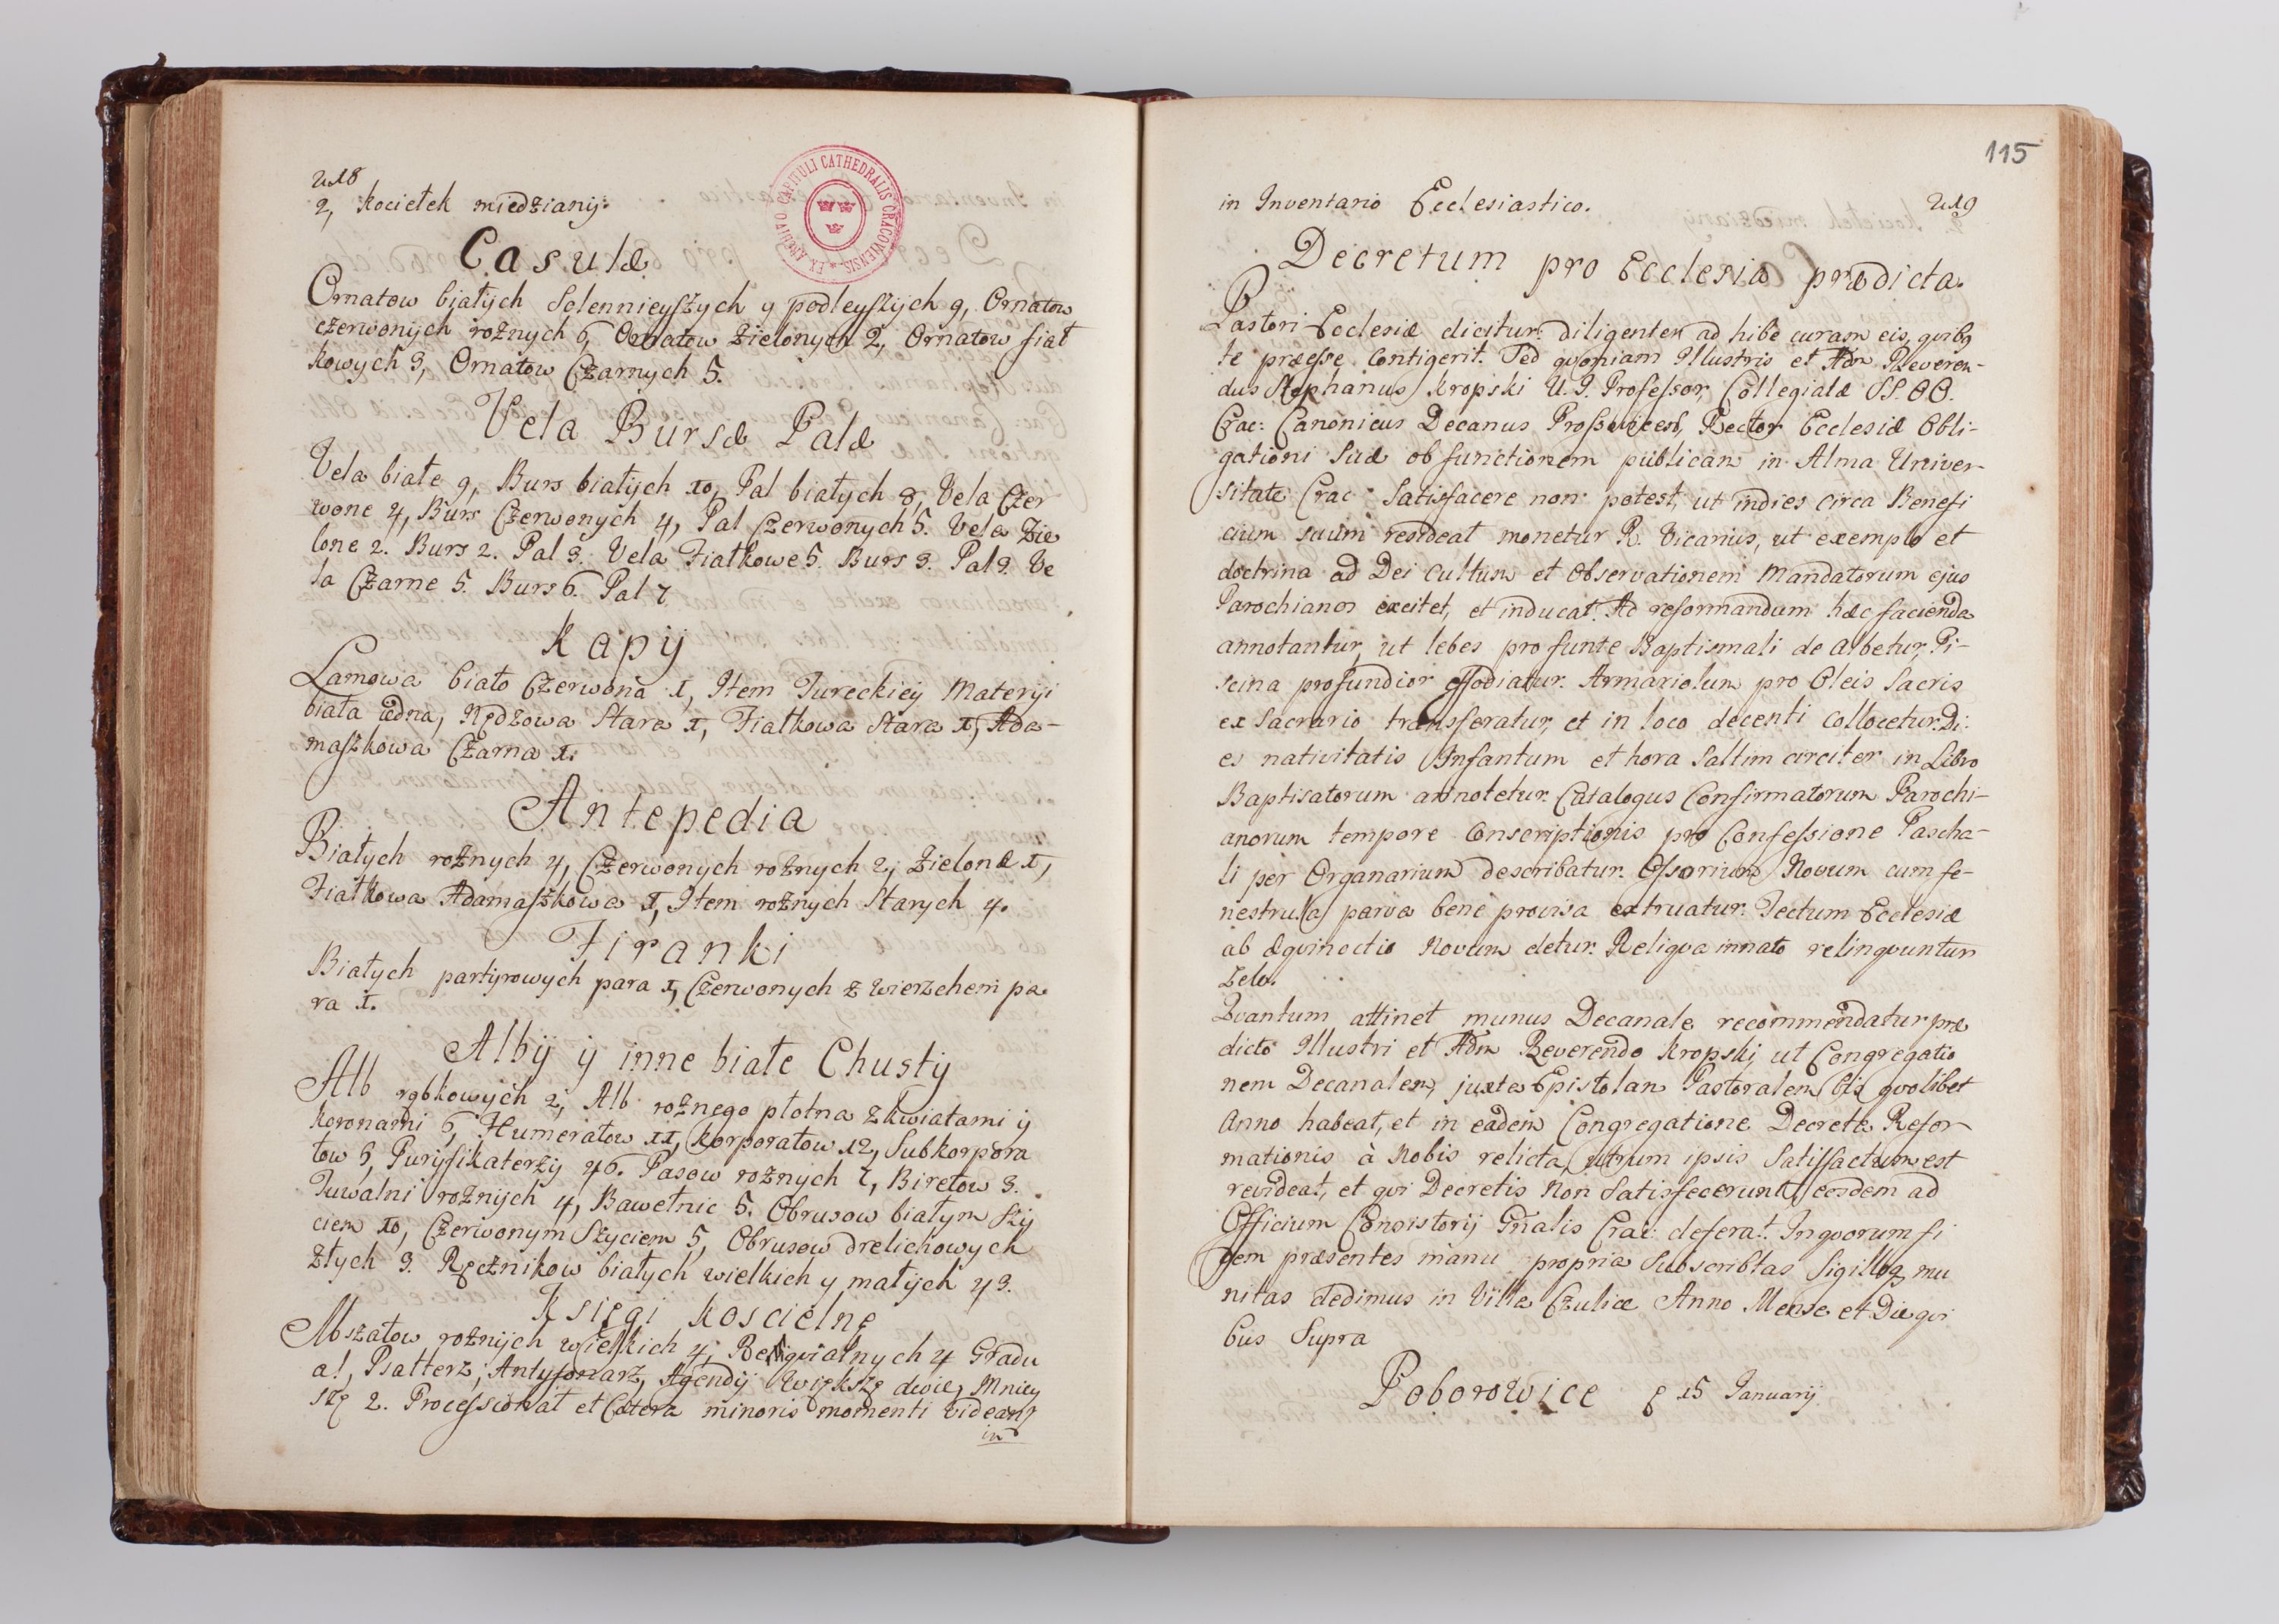 218
2, kociełek miedziany.
EX ARCHIVO CAPITULI CATHEDRALIS CRACOVIENSIS
Casulæ
Ornatow białych Solennieyszych 9 podleyszych 9, Ornatow
czerwonych rożnych 6, Ornatow Zielonych 2, Ornatow fiał
kowych 3, Ornatow Czarnych 5.
Vela Bursæ Palæ
Vela białe 9, Burs białych 10, Pal białych 8, Vela Czer
wone 4, Burs Czerwonych 4, Pal Czerwonych 5. Vela Zie
lone 2. Burs 2. Pal 3. Vela Fiałkowe 5. Burs 3. Pal 3. Ve
la Czarne 5. Burs 6. Pal 7.
Kapy
Lamowa biało Czerwona 1, Item Tureckiey Materyi
biała iedna, Rędzowa Stara 1, Fiałkowa Stara 1, Ada-
maszkowa Czarna 1.
Antepedia
Białych rożnych 4, Czerwonych rożnych 2, Zielonæ 1,
Fiałkowa Adamaszkowa 1, Item rożnych Starych 4.
Firanki
Białych partyrowych para 1, Czerwonych z wierzchem pa
ra 1.
Alby y inne białe Chusty
Alb rąbkowych 2, Alb rożnego płotna z kwiatami y
koronami 6, Humerałow 11, Korporałow 12, Subkorpora
łow 6, Puryfikaterzy 46. Pasow rożnych 7, Biretow 3.
Tuwalni rożnych 4, Bawełnic 5. Obrusow białym Szy
ciem 10, Czerwonym Szyciem 5, Obrusow drelichowych
złych 3. Ręcznikow białych wielkich y małych 43.
Księgi koscielnę
Mszałow rożnych wielkich 4, Reqvialnych 4 Gradu
ał, Psałterz, Antyfonarz, Agendy Większę dwie, Mniey
szę 2. Processionał et Cætera minoris momenti videant
in
115
in Inventario Ecclesiastico. 219
Decretum pro Ecclesia prædicta.
Pastori Ecclesiæ dicitur: diligenter ad hibe curam eis, qvibq
te præesse Contigerit. Sed qvoniam Illustris et Adm Reveren-
dus Stephanus Kropski U. I. Professor, Collegiatæ SS. OO.
Crac: Canonicus Decanus Rector Ecclesiæ Obli-
gationi Suæ ob functionem publicam in Alma Univer
sitate Crac: Satisfacere non potest, ut indies circa Benefi
cium suum resideat monetur R. Vicarius, ut exemplo et
doctrina ad Dei Cultum et Observationem Mandatorum ejus
Parochianos excitet, et inducat. Ad reformandum hæc facienda
annotantur, ut lebes pro funte Baptismali de albetur, Pi-
scina profundior effodiatur. Armariolum pro Oleis Sacris
ex Sacrario transferatur, et in loco decenti Collocetur. Di
es nativitatis Infantum et hora Saltim circiter in Libro
Baptisatorum annotetur. Catalogus Confirmatorum Parochi-
anorum tempore Conscriptionis pro Confessione Pascha-
li per Organarium describatur. Ossorium Novum cum fe-
nestrula parva bene provisa extruatur. Tectum Ecclesiæ
ab Æqvinoctio Novum detur. Reliqva innato relinqvuntur
Zelo.
Qvantum attinet munus Decanale recommendatur præ
dicto Illustri et Adm Reverendo Kropski, ut Congregatio
nem Decanalem, juxta Epistolam Pastoralem bis qvolibet
Anno habeat, et in eadem Congregatione Decreta Refor
mationis à Nobis relicta, utrum ipsis Satisfactum est
revideat, et qvi Decretis Non Satisfecerunt, eosdem ad
Officium Consistorij Gñalis Crac: deferat. In qvorum fi
dem præsentes manu propria Subscribtas Sigilloq mu
nitas dedimus in Villa Czulice Anno Mense et Die qvi
bus Supra
Poborowice 15 Januarij